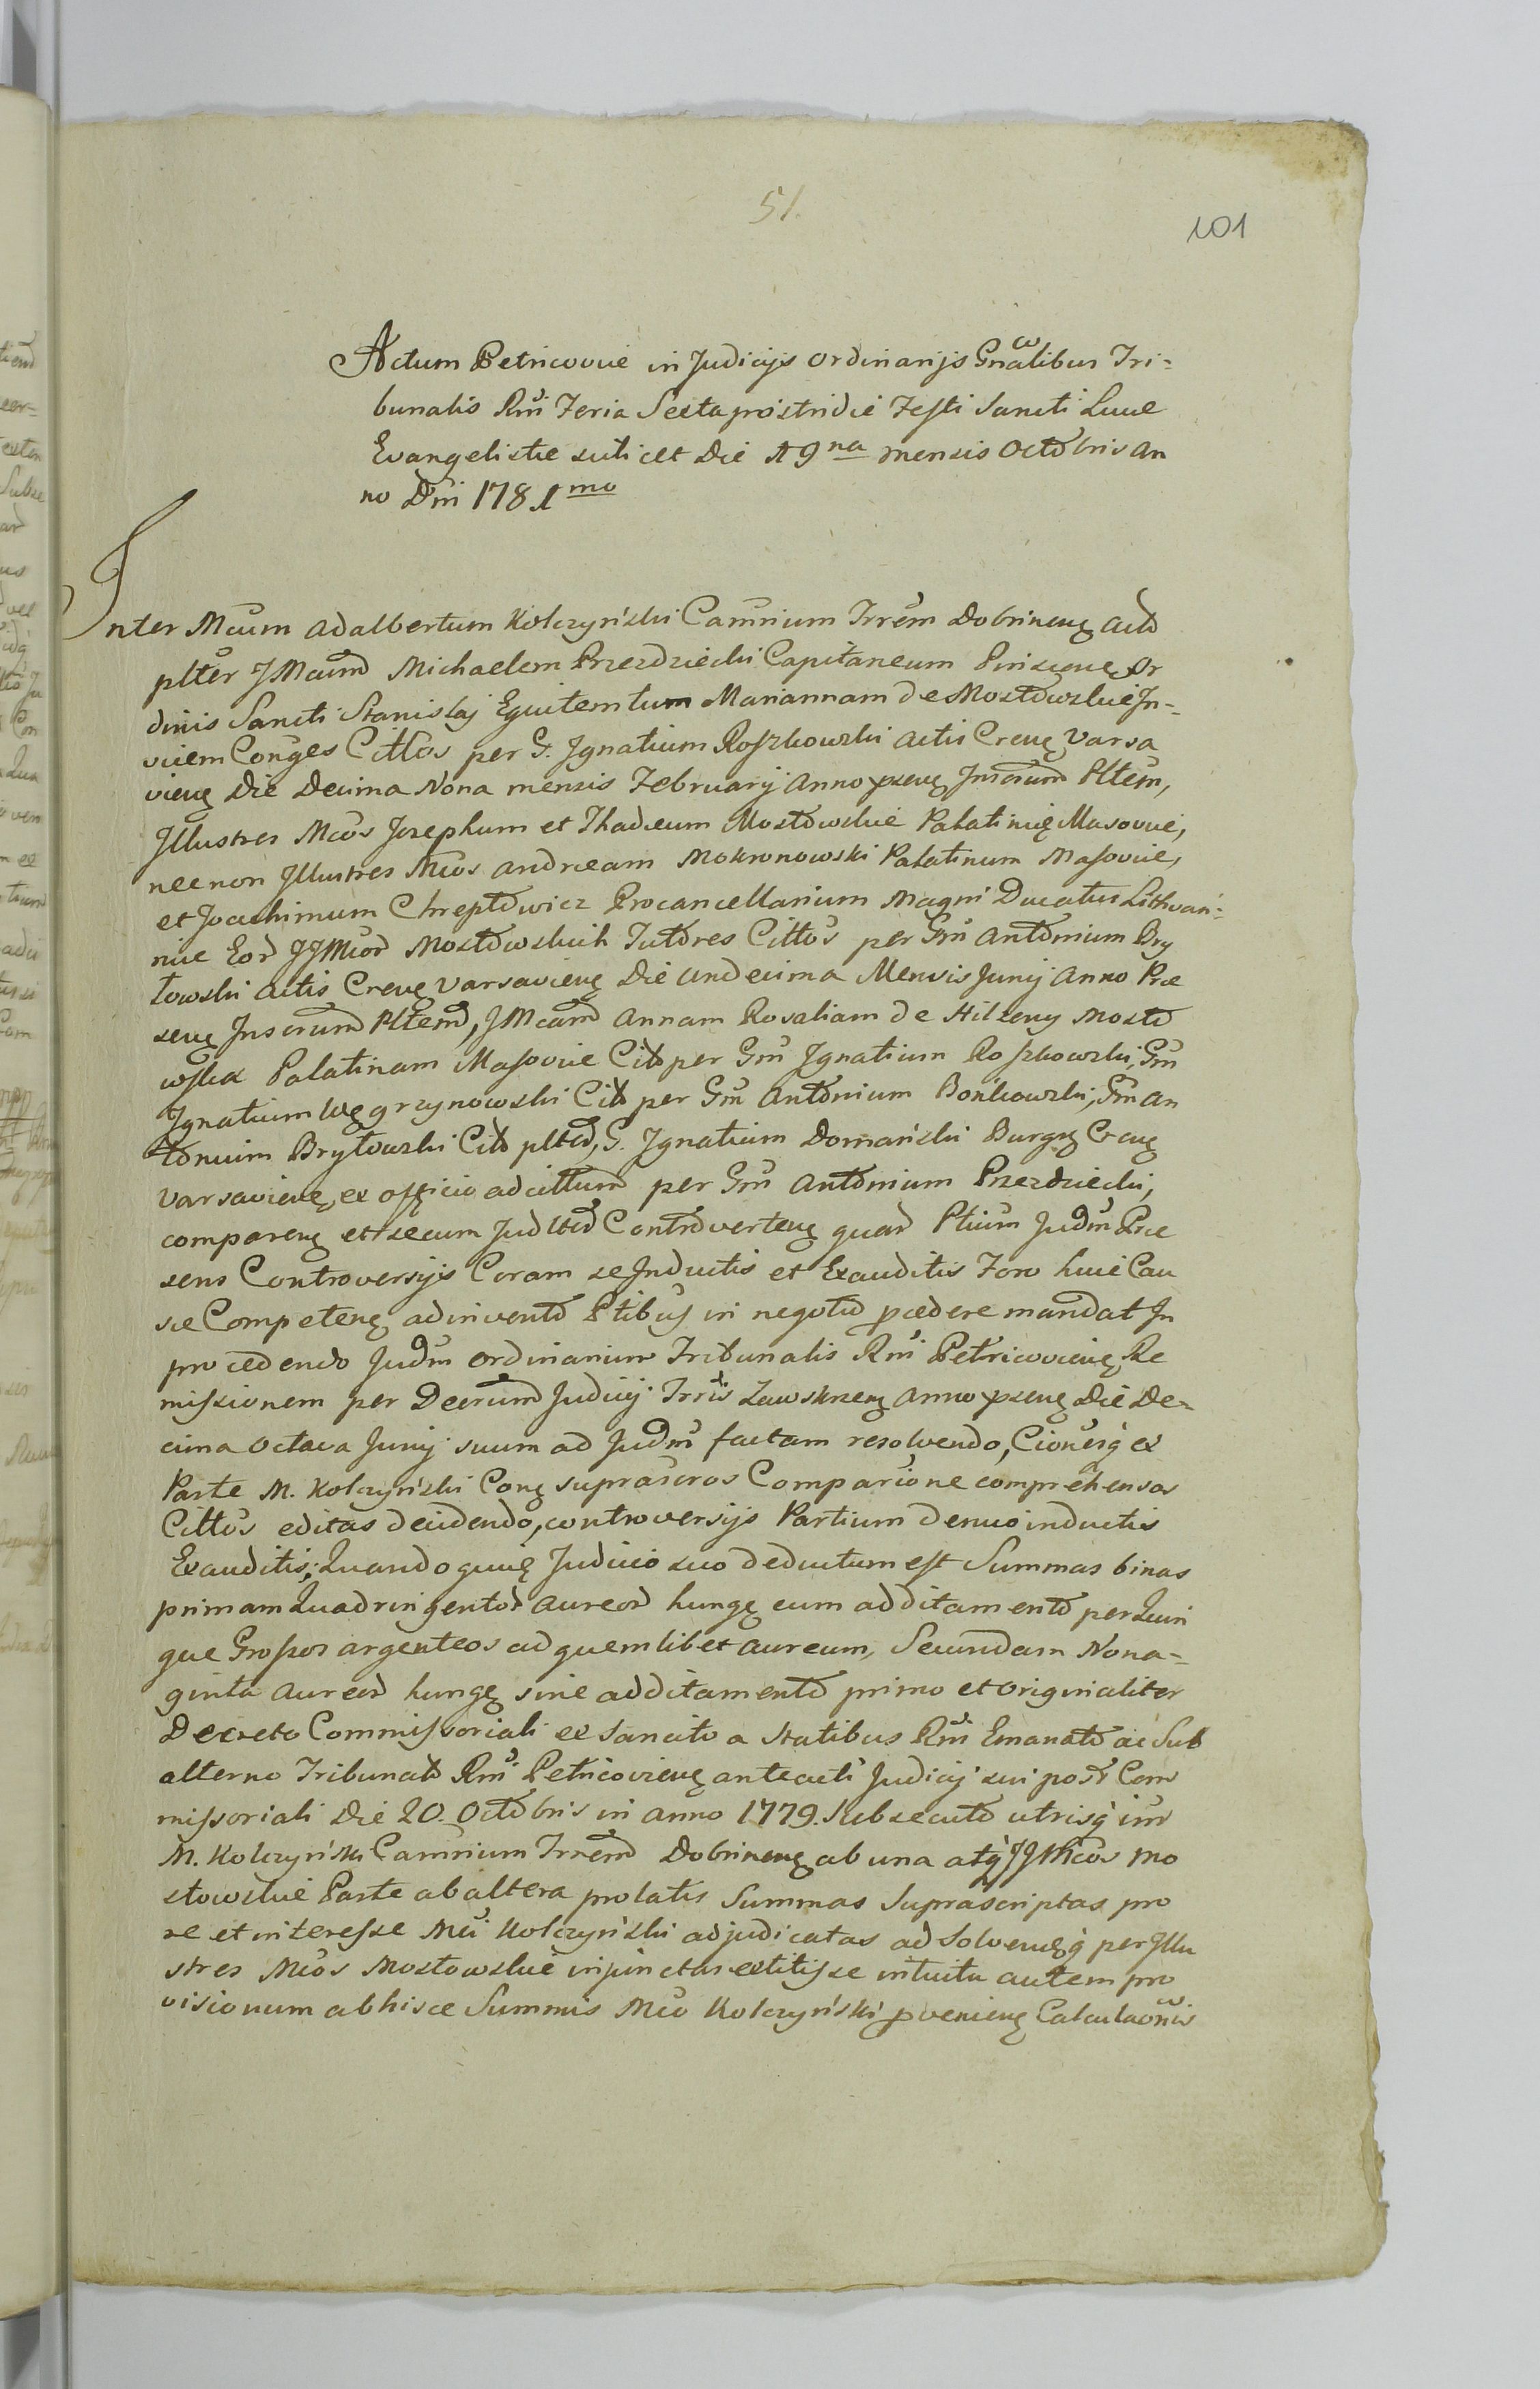 51.
101
Actum Petricoviæ in Judicijs Ordinarijs Gnalibus Tri=
bunalis Rni Feria Sexta postridie Festi Sancti Lucæ
Evangelistæ scilicet Die 19na mensis Octobris An
no Dni 1781mo
Inter Mcum Adalbertum Kolczyński Camrium Trrem Dobrinenę Acto
plter JMcum Michaelem Przezdziecki Capitaneum Pinscenę Or
dinis Sancti Stanislaj Equitem tum Mariannam de Mostowskie In=
vicem Conges Cittos per G. Jgnatium Roszkowski Actis Crenę Varsa
vienę Die Decima Nona mensis February Anno pxenę Inserum Pltem,
Jllustres Mcos Josephum et Thadæum Mostowskie Palatinię Masoviæ,
necnon Jllustres Mcos Andræam Mokronowski Palatinum Masoviæ,
et Joachimum Chreptowicz Procancellarium Magni Ducatus Lithvan=
niæ Eor JJMcor Mostowskich Tutores Cittos per Gm Antonium Bry
towski Actis Crenę Varsavienę Die Undecima Mensis Junij Anno Præ
senę Inserum Pltem, JMcam Annam Rosaliam de Hilzeny Mosto
wska Palatinam Masoviæ Citt per Gm Jgnatium Roszkowski, Gm
Jgnatium Węgrzynowski Citt per Gm Antonium Bońkowski, Gm An
tonium Brytowski Citt pltr, G. Jgnatium Domański Burgę Crenę
Varsavienę ex officio adcittum per Gm Antonium Przezdziecki,
comparenę et secum Judltr Controvertenę quar Ptium Judm Præ
sens Controversijs Coram se Inductis et Exauditis Foro huic Cau
sæ Competenę adinvento Ptibus in negotio pcedere mandat In
procedendo Judm Ordinarium Tribunalis Rni Petricovienę Re
missionem per Decrum Judicij Trris Zawskrzenę Anno pxenę Die De=
cima Octava Junij suum ad Judm factam resolvendo, Cionesq ex
Parte M. Kolczyński Conę suprascros Comparcione comprehensos
Cittos editas decidendo, controversijs Partium denuo inductis
Exauditis; Quandoquidę Judicio suo deductum est Summas binas
primam Quadringentor Aureor hungę cum additamento per Quin
que Grossos argenteos ad quemlibet aureum, Secundam Nona=
ginta Aureor hungę sine additamento primo et originaliter
Decreto Commissoriali ex Sancito a Statibus Rni Emanato ac Sub
alterno Tribunalis Rni Petricovienę anteacti Judicij sui post Com
missoriali Die 20. Octobris in Anno 1779. Subsecuto utrisq inr
M. Kolczyński Camrium Trrem Dobrinenę ab una atq JJMcos Mo
stowskie Parte ab altera prolatis Summas Suprascriptas pro
re et interesse Mci Kolczyński adjudicatas ad Solvenęq per Jllu
stres Mcos Mostowskie injunctas extitisse intuitu autem pro
visionum ab hisce Summis Mco Kolczyński pvenienę Calculaonis